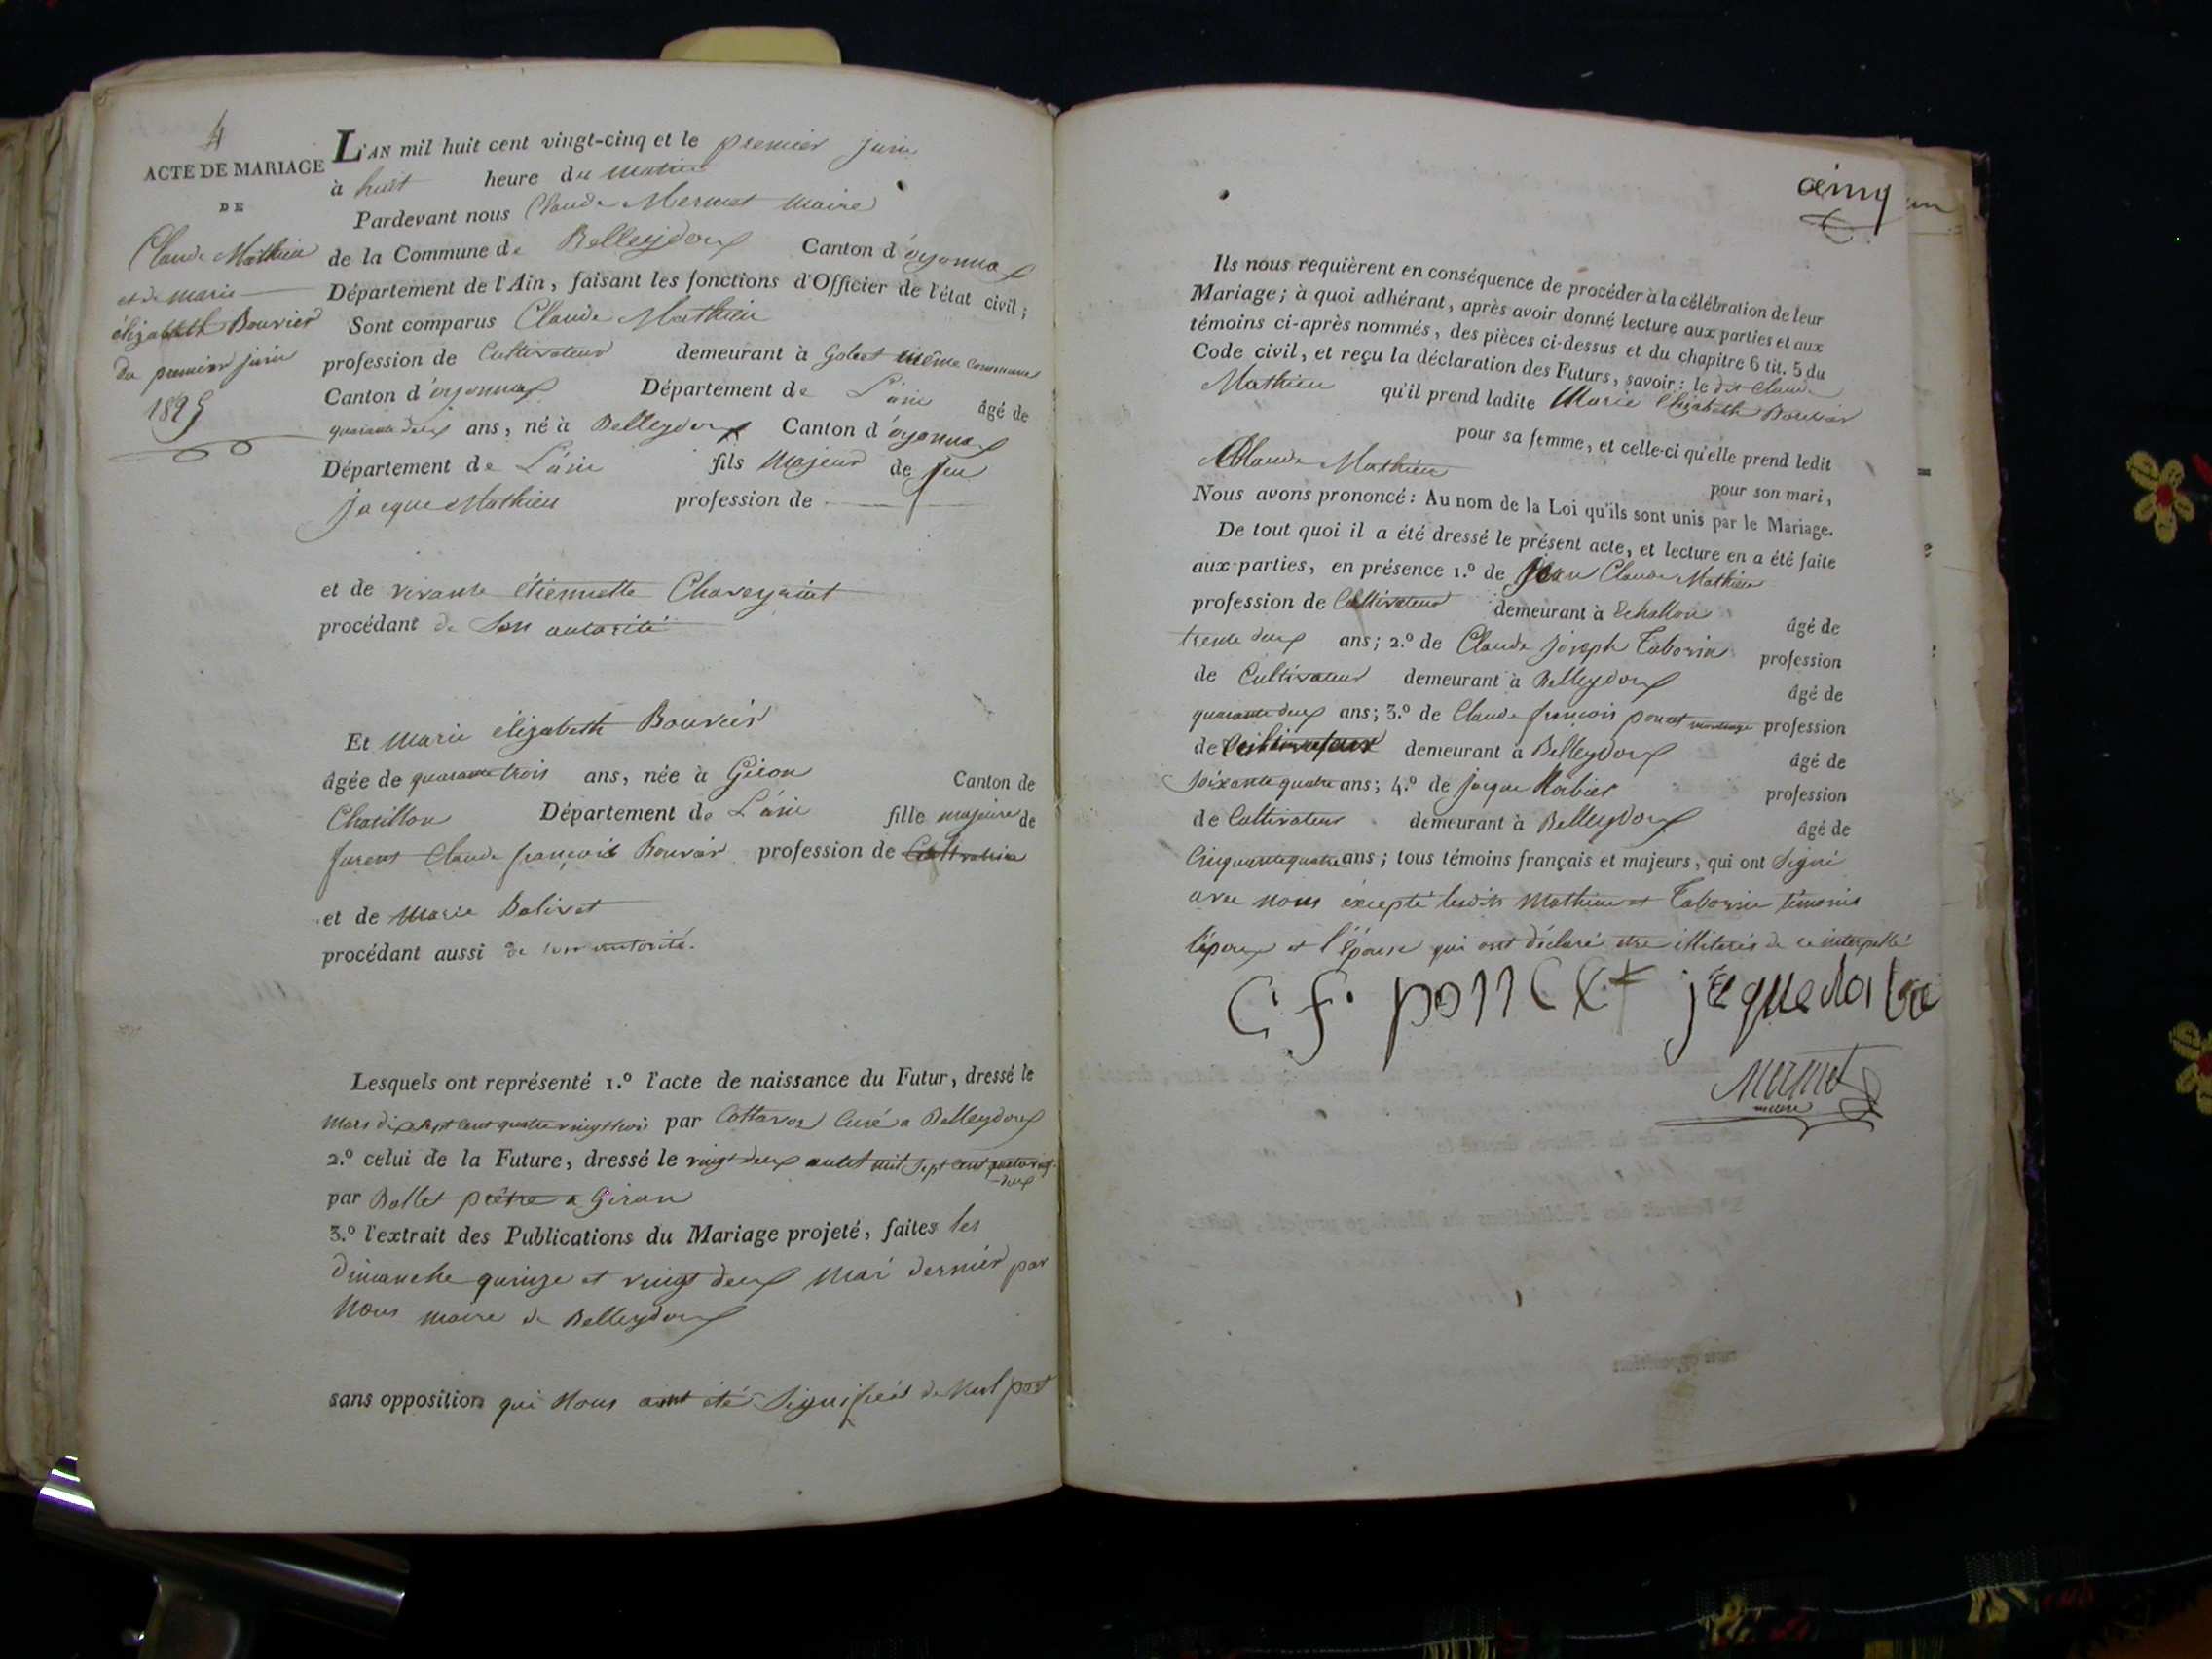 4
ACTE DE MARIAGE
DE
Claude Mathieu
et de marie
élizabeth Bouvier
du premier juin
1825
L'AN mil huit cent vingt-cinq et le premier juin
à huit heure du matin
Pardevant nous Claude Mermet maire
de la Commune de Belleydoux Canton d'oyonnax
Département de l'Ain, faisant les fonctions d'Officier de l'état civil;
Sont comparus Claude Mathieu
profession de Cultivateur demeurant à Gobet même commune
Canton d'oyonnax Département de L'ain âgé de
quarante deux ans, né à Belleydoux Canton d'oyonnax
Département de L'ain fils Majeur de feu
jacque Mathieu profession de
et de vivante étiennette Chaveyriat
procédant de son autorité
Et Marie élizabeth Bouvier
âgée de quarante trois ans, née à Giron Canton de
Chatillon Département de L'ain fille majeure de
furent Claude françois Bouvier profession de
et de Marie Balivet
procédant aussi de son autorité.
Lesquels ont représenté 1.º l'acte de naissance du Futur, dressé le
mars dix sept cent quatre vingt trois par Cottavoz Curé a Belleydoux
2.º celui de la Future, dressé le vingt deux mil sept cent quatre vingt
-deux
par Ballet prêtre a Giron
3.º l'extrait des Publications du Mariage projeté, faites les
dimanche quinze et vingt deux mai dernier par
nous maire de Belleydoux
sans opposition qui nous ont été signifiées de nul part
cinq
Ils nous requièrent en conséquence de procéder à la célébration de leur
Mariage; à quoi adhérant, après avoir donné lecture aux parties et aux
témoins ci-après nommés, des pièces ci-dessus et du chapitre 6 tit. 5 du
Code civil, et reçu la déclaration des Futurs, savoir: le dit Claude
Mathieu qu'il prend ladite Marie Elizabeth Bouvier
pour sa femme, et celle-ci qu'elle prend ledit
Claude Mathieu pour son mari,
Nous avons prononcé: Au nom de la Loi qu'ils sont unis par le Mariage.
De tout quoi il a été dressé le présent acte, et lecture en a été faite
aux parties, en présence 1.º de Jean Claude Mathieu
profession de Cultivateur demeurant à Echallon âgé de
trente deux ans; 2.º de Claude joseph Taborin profession
de Cultivateur demeurant à Belleydoux âgé de
quarante deux ans; 3.º de Claude françois poncet profession
de demeurant à Belleydoux âgé de
soixante quatre ans; 4.º de jacque profession
de Cultivateur demeurant à Belleydoux âgé de
Cinquante quatre ans; tous témoins français et majeurs, qui ont signé
avec nous excepté lesdits Mathieu et Taborin témoins
l'époux et l'épouse qui ont déclaré etre illiterés de ce interpellé
C. f. poncet
mermet
maire